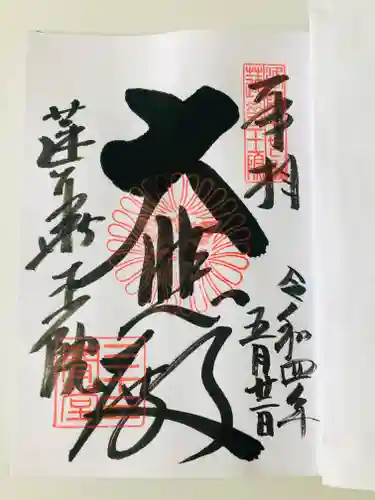 奉拝
令和四年
五月廿一日
大悲殿
蓮華王院
三十三間堂